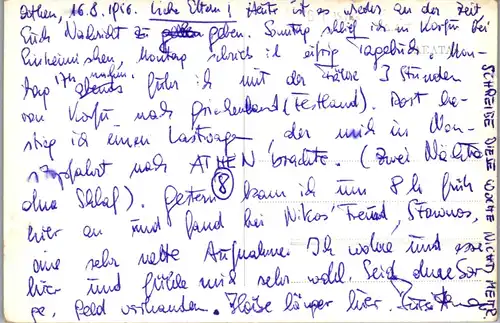 Athen, 16.8.1976. Liebe Eltern! Heute ist es wieder an der Zeit
Euch Nachricht zu geben. Sonntag schlief ich in Korfu bei
Einheimischen, Montag schrieb ich eifrig Tagebuch. Mon-
tag 17h nachm. fuhr ich mit der Fähre 3 Stunden
von Korfu nach Griechenland (Festland). Dort be-
stieg ich einen Lastwagen, der mich in Non-
stopfahrt nach ATHEN brachte. (Zwei Nächte
ohne Schlaf). Gestern kam ich um 8h früh
8
hier an und fand bei Nikos' Freund, Stavros,
eine sehr nette Aufnahme. Ich wohne und esse
hier und fühle mich sehr wohl. Seid ohne Sor-
ge, Geld vorhanden. Bleibe länger hier.
SCHREIBE DIESE WOCHE NICHT MEHR.